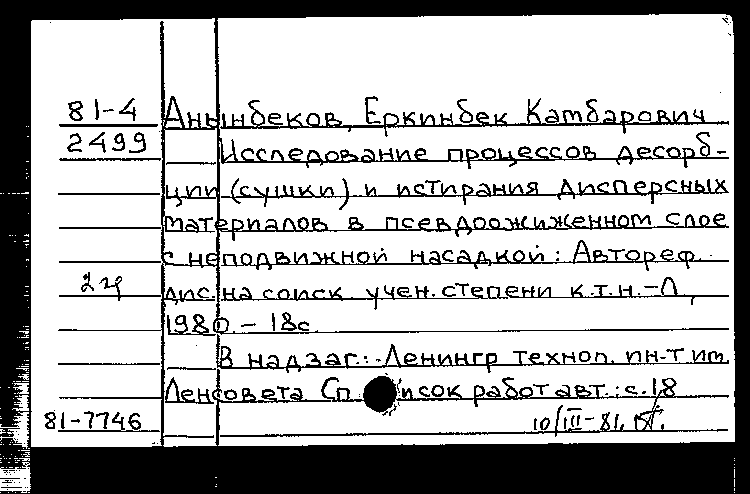 81-4 Анынбеков, Еркинбек Катбарович
2499 Исследование процессов десорб-
ции (сушки) и истирания дисперсных
материалов в псевдоожиженном слое
с неподвижной насадкой: Автореф.
дис. на соиск. учен. степени к.т.н. - Л,
1980. - 18с.
В надзаг.: Ленингр технол. ин-т им.
Ленсовета Список работ авт.: с. 18
81-7746 10/III-81.